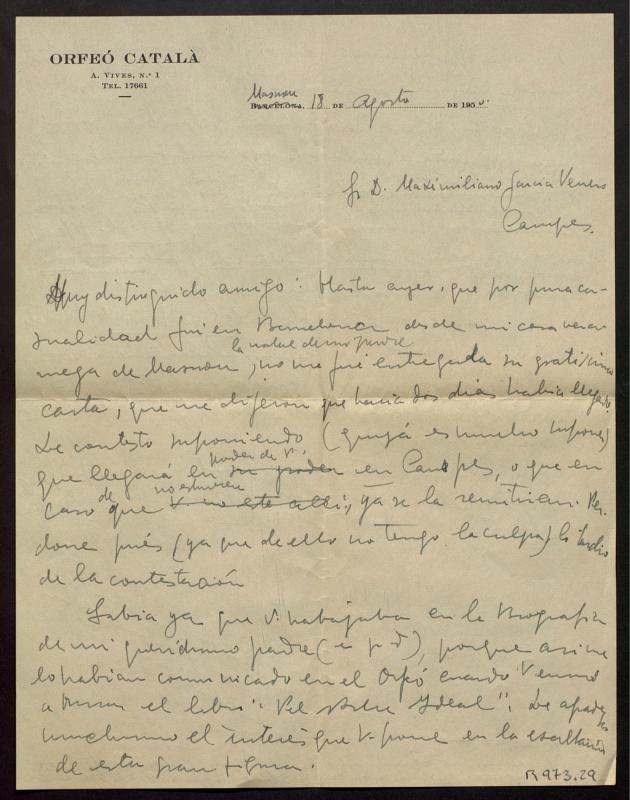 ORFEÓ CATALÀ
A. VIVES, N.º 1
TEL. 17661
Masnou
BARCELONA, 18 DE agosto DE 1950.
Sr D. Maximiliano Garcia Venero
Campes.
Muy distinguido amigo: Hasta ayer, que por pura ca-
sualidad fui en Barcelona desde mi casa vera-
la natal de mi padre
niega de Masnou, no me fué entregada su gratisima
carta, que me dijeron que hacia dos dias habia llegado.
Le contesto suponiendo (quizá es mucho suponer)
poder de V.
que llegará en su poder en Campes, o que en
de no estuviere
caso que V. no esté alli, ya se la remitirian. Per-
done pués (ya que de ello no tengo la culpa) lo tardio
de la contestación
Sabia ya que V. trabajaba en la Biografia
de mi queridisimo padre (e p d), porque asi me
lo habian comunicado en el Orfeó cuando V
a el libro "Del Ideal". Le agradezco
muchisimo el interés que V. pone en la exaltación
de esta gran figura.
R 973.29